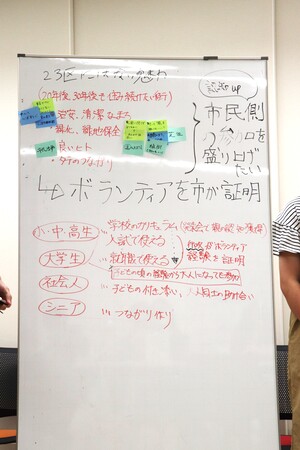 23区にはない魅力
(20年後、30年後も住み続けたい街)
認知up
治安、清潔なまち
緑化、緑地保全
良いヒト
タテのつながり
市民側
の参加を
盛り上げ
たい
ボランティアを市が証明
小・中・高生
学校のカリキュラム
入試で使える
大学生
就職で使える
市がボランティア
経験を証明
子どもの頃の経験から大人になっても参加
社会人
子どもの付き添い、大人同士の助け合い
シニア
つながり作り